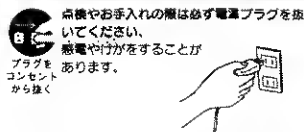 点検やお手入れの際は必ず電源プラグを抜
いてください、
感電やけがをすることが
あります。
プラグを
コンセント
から抜く